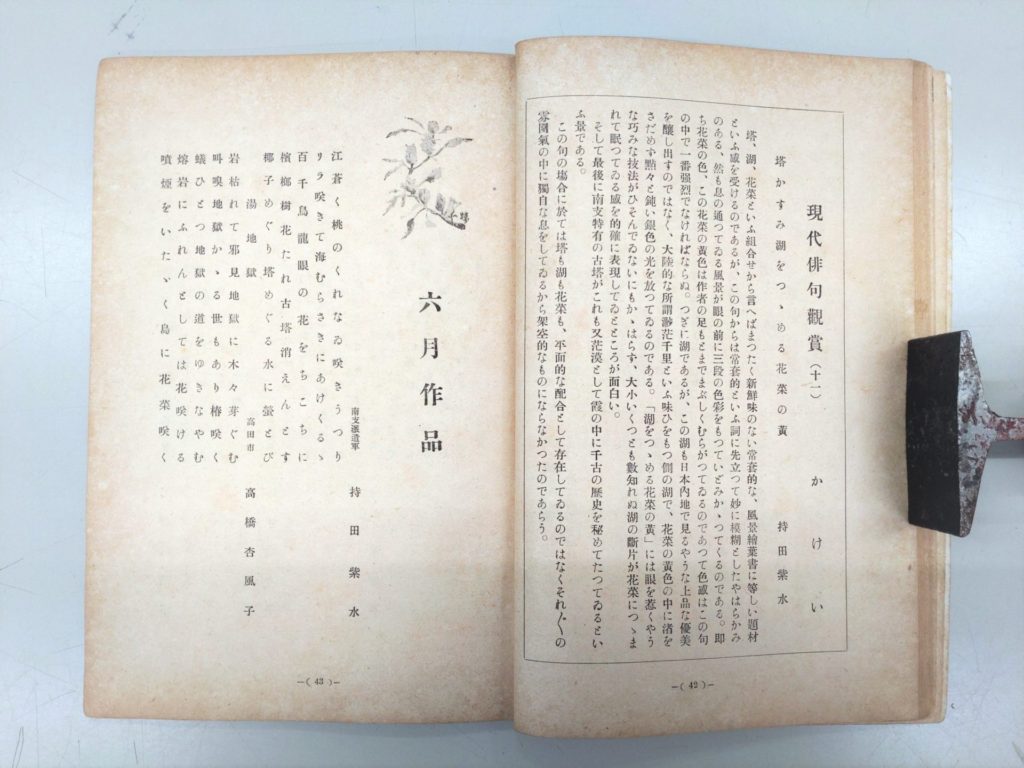 現代俳句觀賞(十一)
かけい
塔かすみ湖をつゝめる花菜の黃
持田紫水
塔、湖、花菜といふ組合せから言へばまつたく新鮮味のない常套的な、風景繪葉書に等しい題材
といふ感を受けるのであるが、この句からは常套的といふ詞に先立つて妙に模糊としたやはらかみ
のある、然も息の通つてゐる風景が眼の前に三段の色彩をもつていどみかゝつてくるのである。卽
ち花菜の色、この花菜の黃色は作者の足もとまでまぶしくむらがつてゐるのであつて色感はこの句
の中で一番强烈でなければならぬ。つぎに湖であるが、この湖も日本內地で見るやうな上品な優美
を釀し出すのではなく、大陸的な所謂渺茫千里といふ味ひをもつ側の湖で、花菜の黃色の中に渚を
さだめず黙々と鈍い銀色の光を放つてゐるのである。「湖をつゝめる花菜の黃」には眼を惹くやう
な巧みな技法がひそんでゐないにもかゝはらず、大小いくつとも數知れぬ湖の斷片が花菜につゝま
れて眠つてゐる感を的確に表現してゐるところが面白い。
そして最後に南支特有の古塔がこれも又茫漠として霞の中に千古の歷史を秘めてたつてゐるとい
ふ景である。
この句の場合に於ては塔も湖も花菜も、平面的な配合として存在してゐるのではなくそれ〴〵の
雰圍氣の中に獨自な息をしてゐるから架空的なものにならなかつたのであらう。
—( 42 )—
六月作品
南支派遣軍 持田紫水
江蒼く桃のくれなゐ咲きうつり
リラ咲きて海むらさきにあけくるゝ
百千鳥龍眼の花をちこちに
檳榔樹花たれ古塔消えんとす
椰子めぐり塔めぐる水に螢とび
湯地獄
高田市 高橋杏風子
岩枯れて邪見地獄に木々芽ぐむ
叫喚地獄かゝる世もあり椿咲く
蟻ひとつ地獄の道をゆきなやむ
熔岩にふれんとしては花咲ける
噴煙をいたゞく島に花菜咲く
—( 43 )—